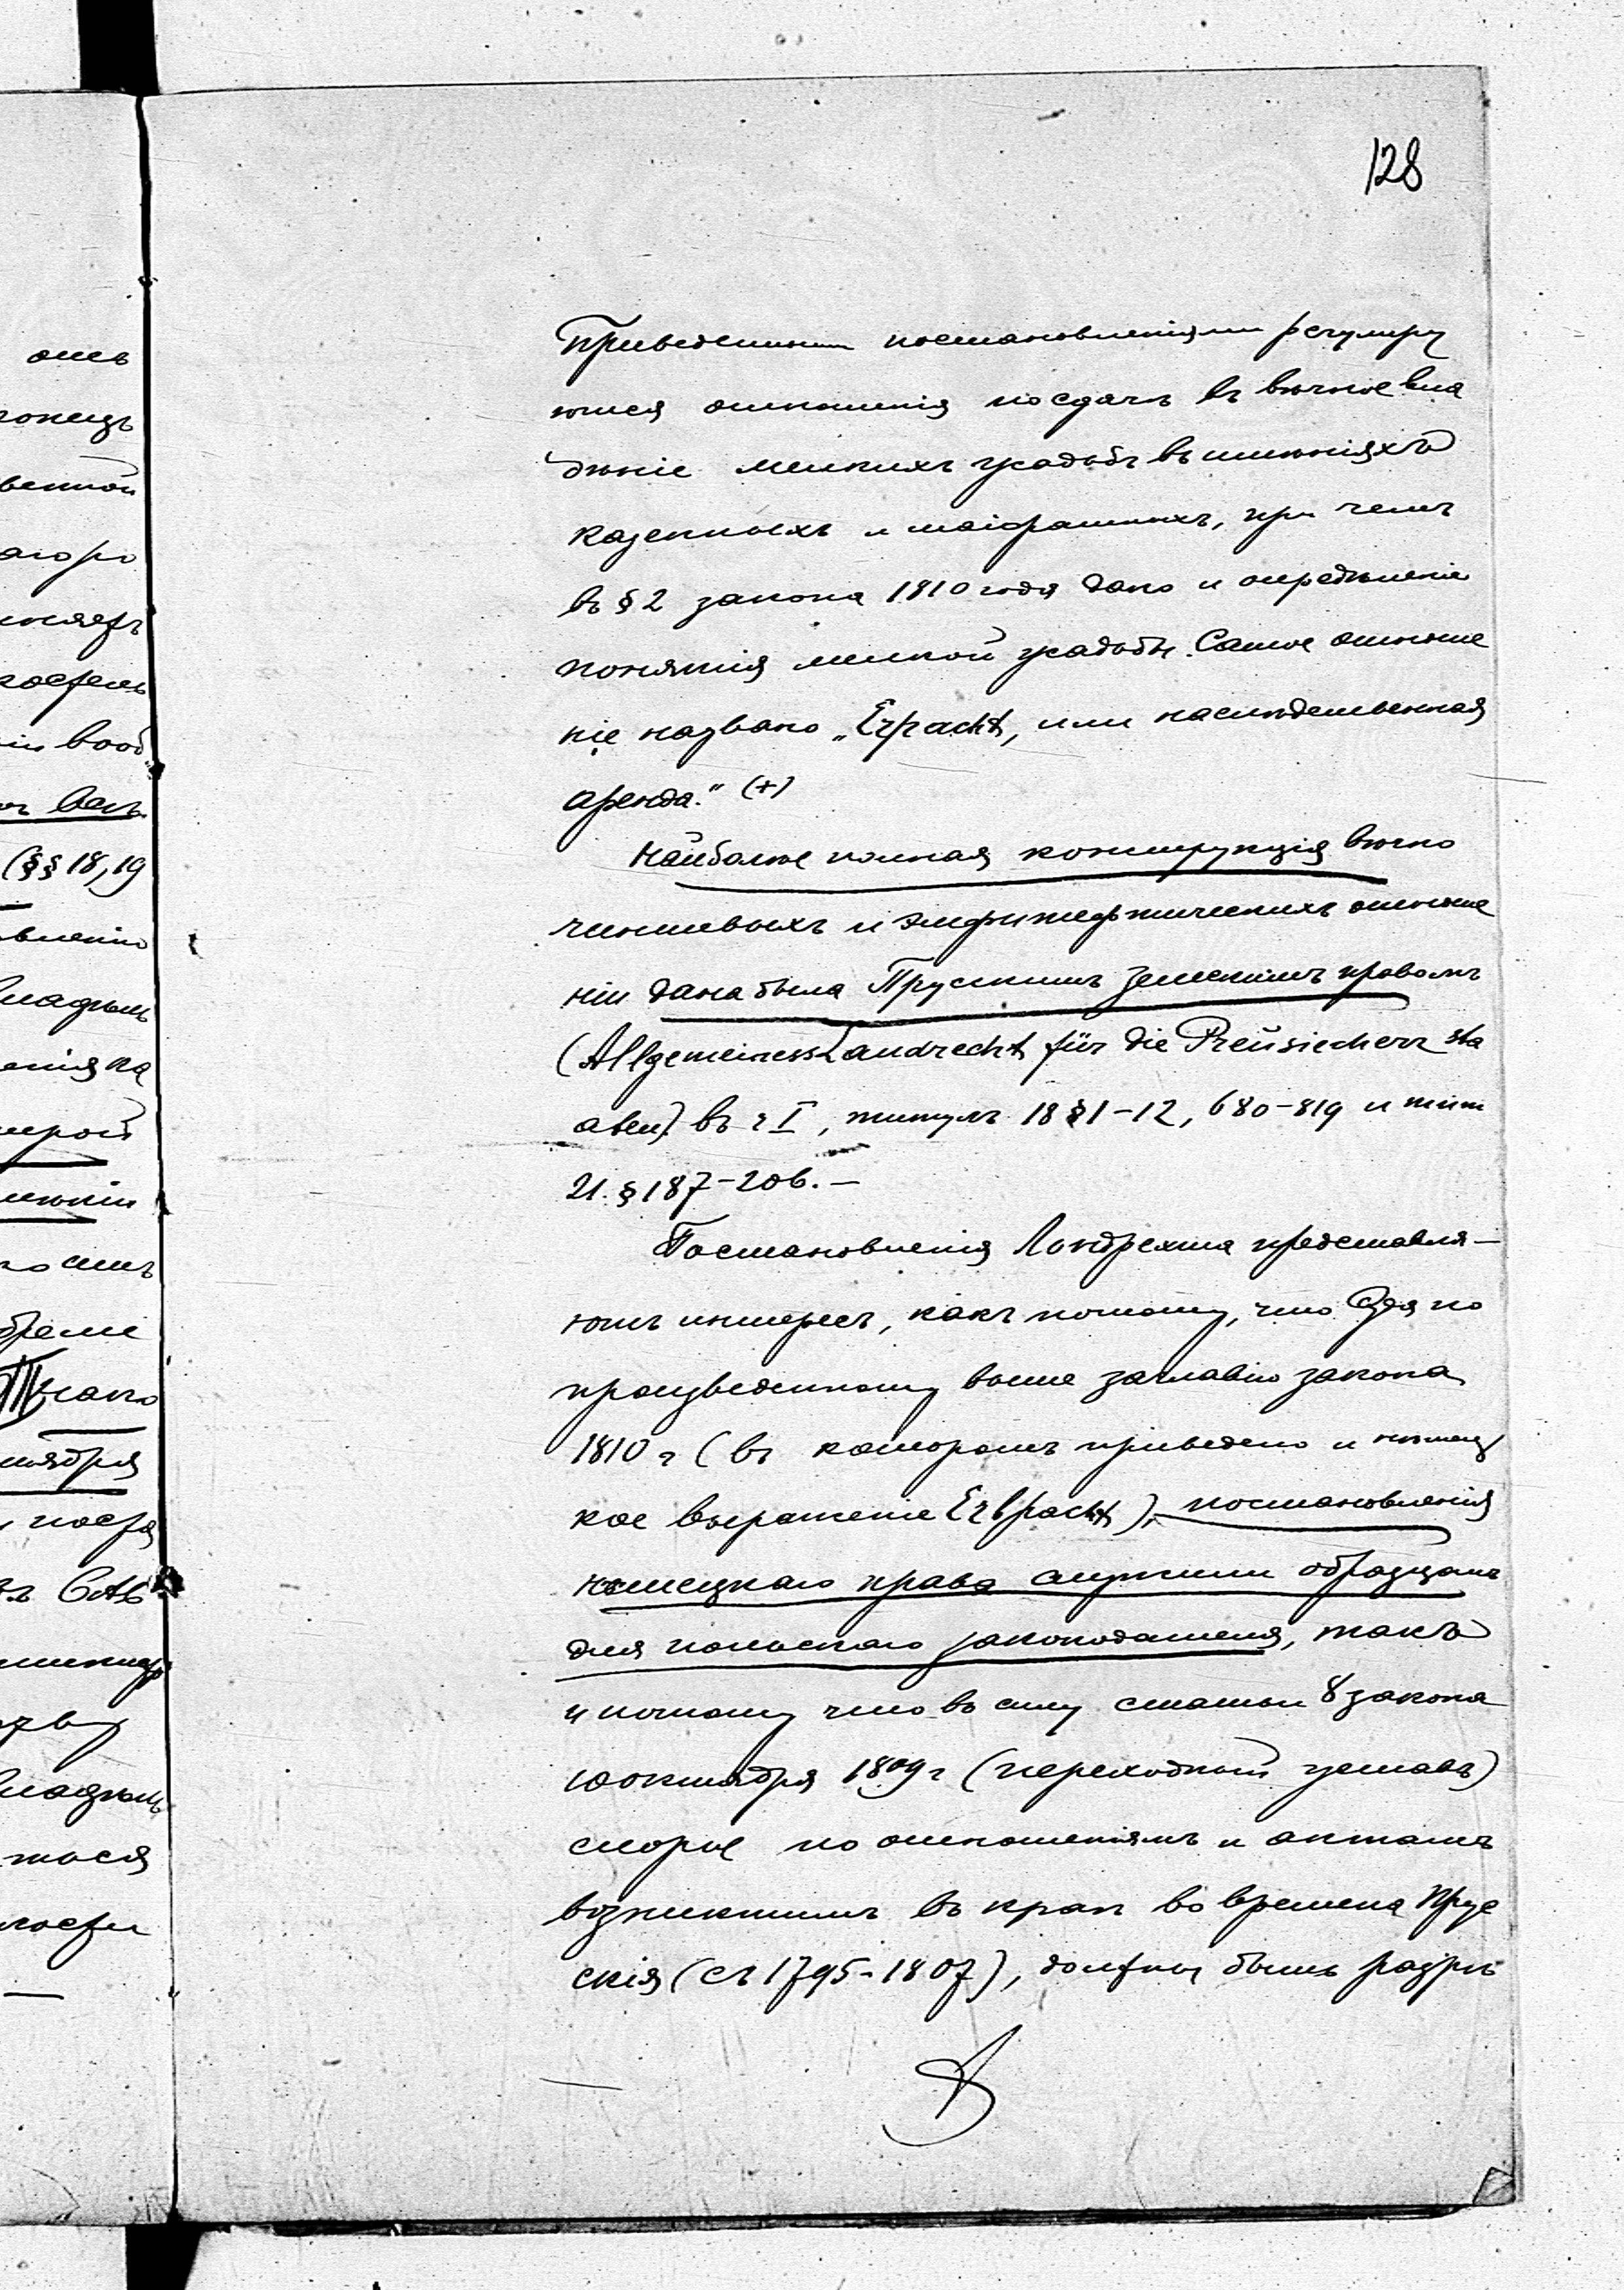 128
Приведенными постановленіями регулиру
ются отношенія по сдачѣ въ вѣчное вла
дѣніе мелкихъ усадьбъ въ имѣніяхъ
казенныхъ и маіоратныхъ, при чемъ
въ § 2 закона 1810 года дано и опредѣленіе
понятія мелкой усадьбы. Самое отноше
ніе названо „Erpacht, или наслѣдственная
аренда." (+)
Наиболѣе полная конструкція вѣчно
чиншевыхъ и эмфитефтическихъ отноше
ній дана была Прусскимъ Земскимъ правомъ
(Allgemeiness Landrecht für die Preüsiechen Sta
aten) въ ч I, титулъ 18 § 1-12, 680-819 и тит
21. § 187-206. —
Постановленія Ландрехта представля-
ютъ интересъ, какъ потому, что судя по
произведенному выше заглавію закона
1810 г (въ которомъ приведено и нѣмец
кое выраженіе Erbpacht), постановленія
нѣмецкаго права служили образцомъ
для польскаго законодателя, такъ
и потому что въ силу статьи 8 закона
10 октября 1809 г (переходный уставъ)
споры по отношеніямъ и актамъ
возникшимъ въ краѣ во времена Прус
скія (съ 1795-1807), должны быть разрѣ
онецъ
венной
вооб
(§§ 18, 19
владѣль
енія на
тября
владѣль
ться